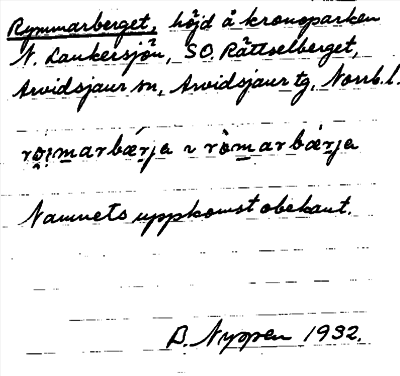 Rymmarberget, höjd å kronoparken
N. Lankersjön, SO. Rättselberget,
Arvidsjaur sn, Arvidsjaur tg, Norrb. l.
röi̯marbærja ı römarbærja
Namnets uppkomst obekant.
B. Nyppen 1932.